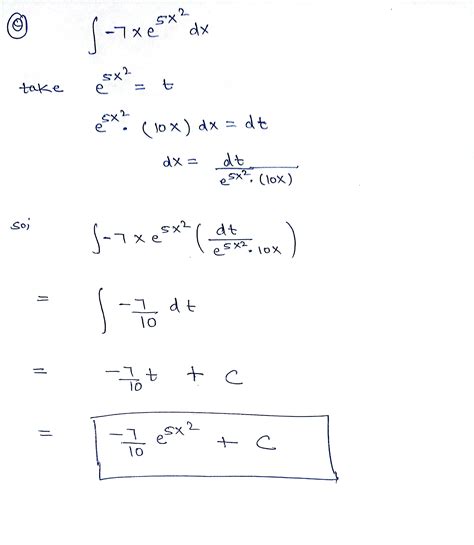 Q ∫ -7xe^{5x^2} dx
take e^{5x^2} = t
e^{5x^2} · (10x) dx = dt
dx = dt / (e^{5x^2} · (10x))
so; ∫ -7xe^{5x^2} (dt / (e^{5x^2} · 10x))
= ∫ -7/10 dt
= -7/10 t + C
= -7/10 e^{5x^2} + C